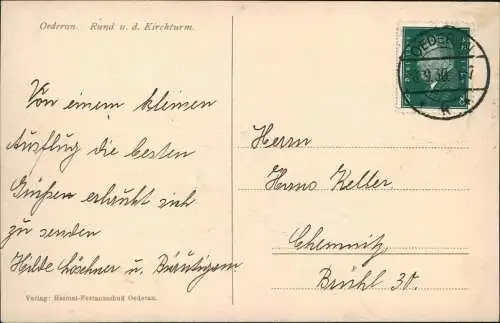 Oederan. Rund u. d. Kirchturm.
Von einem kleinen
Ausflug die besten
Grüßen erlaubt sich
zu senden
Hilde Löschner u. Bräutigam
Verlag: Heimat-Festausschuß Oederan.
OEDERAN
Herrn
Hans Keller.
Chemnitz
Brühl 30.